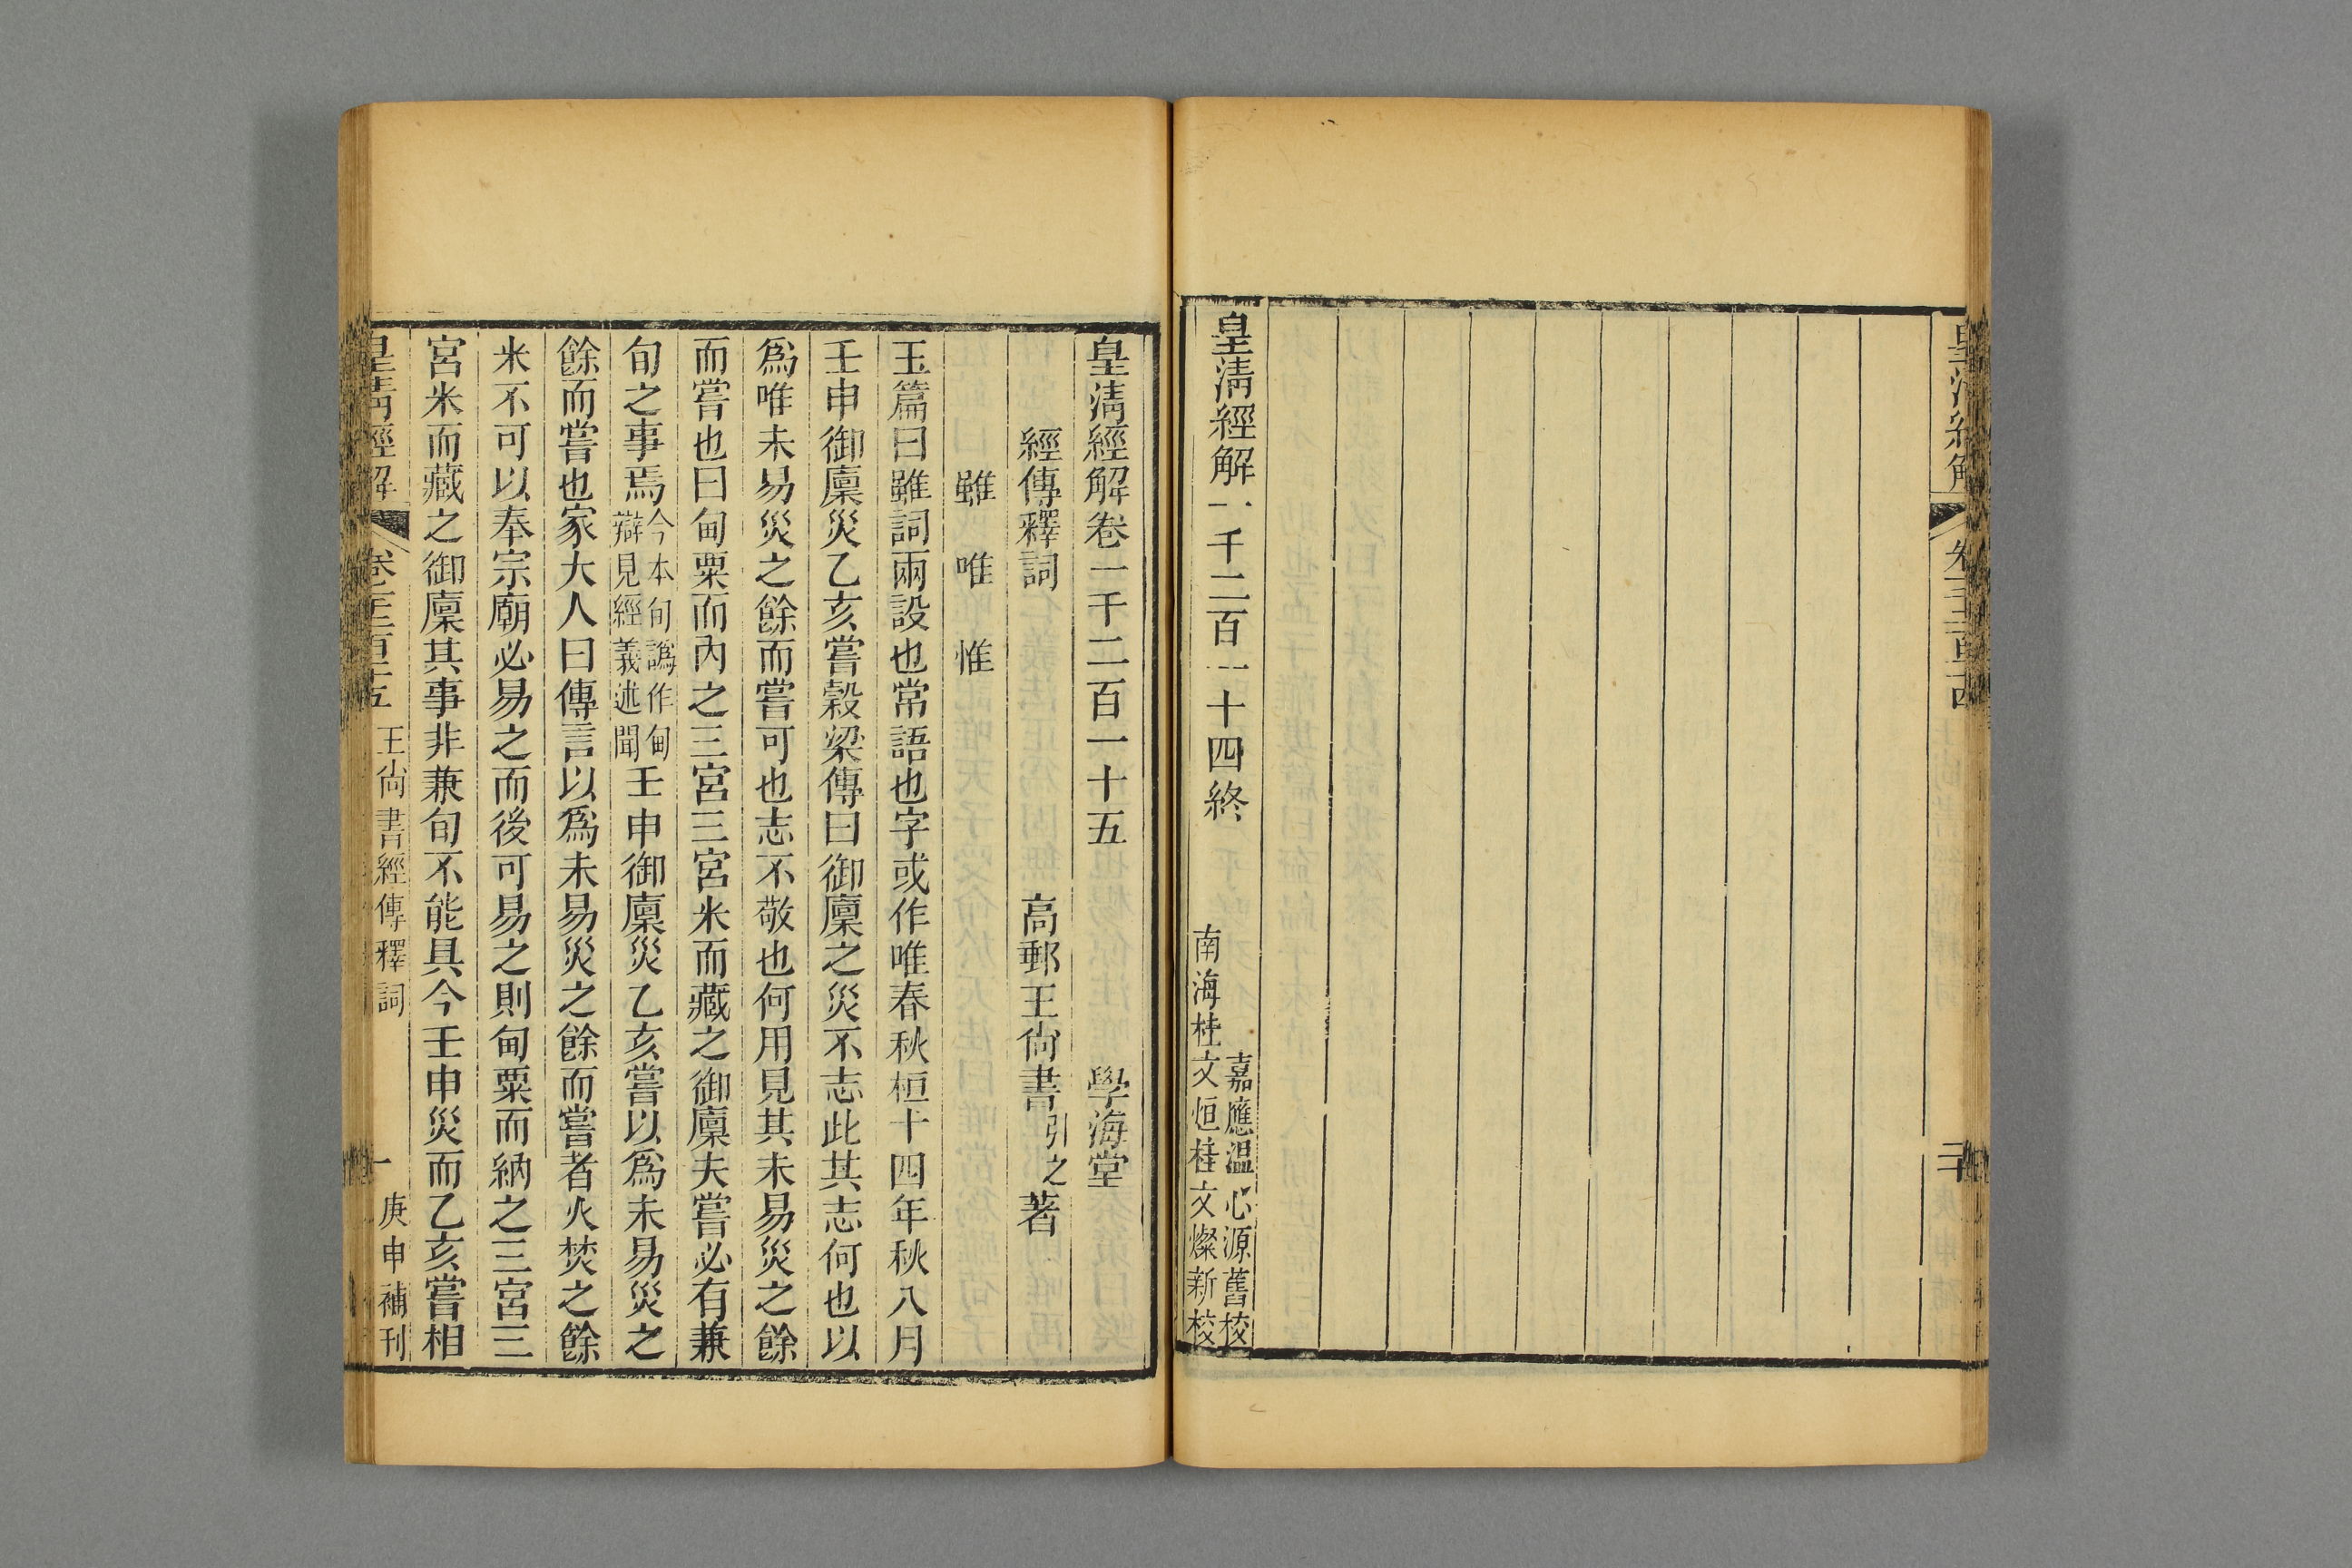 皇清經解
皇清經解一千二百一十四終
嘉應温心源舊校
南海桂文烜桂文燦新校
皇清經解卷一千二百一十五
學海堂
經傳釋詞
高郵王尙書引之著
雖
唯
惟
玉篇曰雖詞兩設也常語也字或作唯春秋桓十四年秋八月
壬申御廩災乙亥嘗穀梁傳曰御廩之災不志此其志何也以
爲唯未易災之餘而嘗可也志不敬也何用見其未易災之餘
而嘗也曰甸粟而內之三宮三宮米而藏之御廩夫嘗必有兼
旬之事焉今本旬譌作甸辯見經義述聞壬申御廩災乙亥嘗以爲未易災之
餘而嘗也家大人曰傳言以爲未易災之餘而嘗者火焚之餘
米不可以奉宗廟必易之而後可易之則甸粟而納之三宮三
宮米而藏之御廩其事非兼旬不能具今壬申災而乙亥嘗相
皇清經解
王尙書經傳釋詞
一
庚申補刊